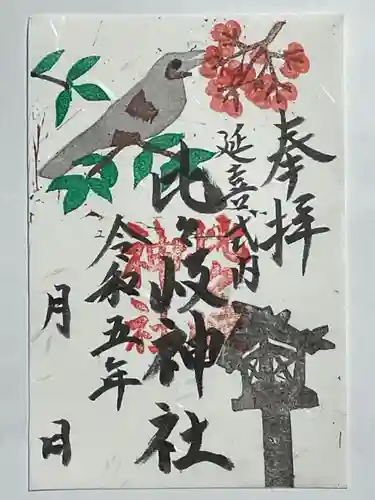 奉拝
延喜式内
比々岐神社
令和五年
月 日